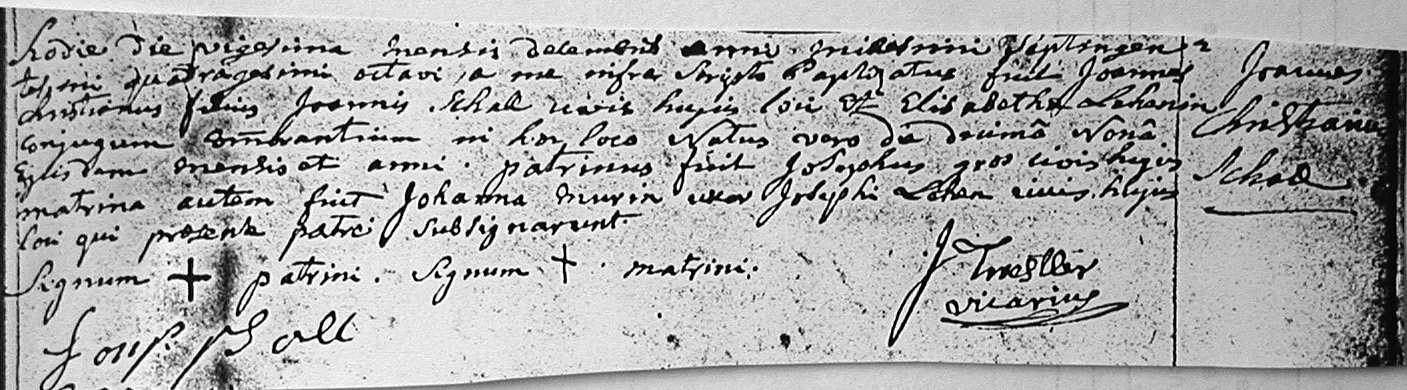 hodie die vigesima mensis decembris anni millesimi septingen=
tesimi quatragesimi octavi a me infra scripto Baptizatus fuit Joannes
christianus filius Joannis Schall civis hujus loci et Elisabetha Lehanin
conjugum commorantium in hoc loco Natus vero die decimâ Nonâ
Ejusdem mensis et anni. patrinus fuit Josephus gros civis hujus
matrina autem fuit Johanna Murin uxor Josephi Lehen civis hujus
loci qui presente patre subsignarunt.
Signum + patrini. Signum + matrini.
J
vicarius
Schall
Joannes
Christianus
Schall